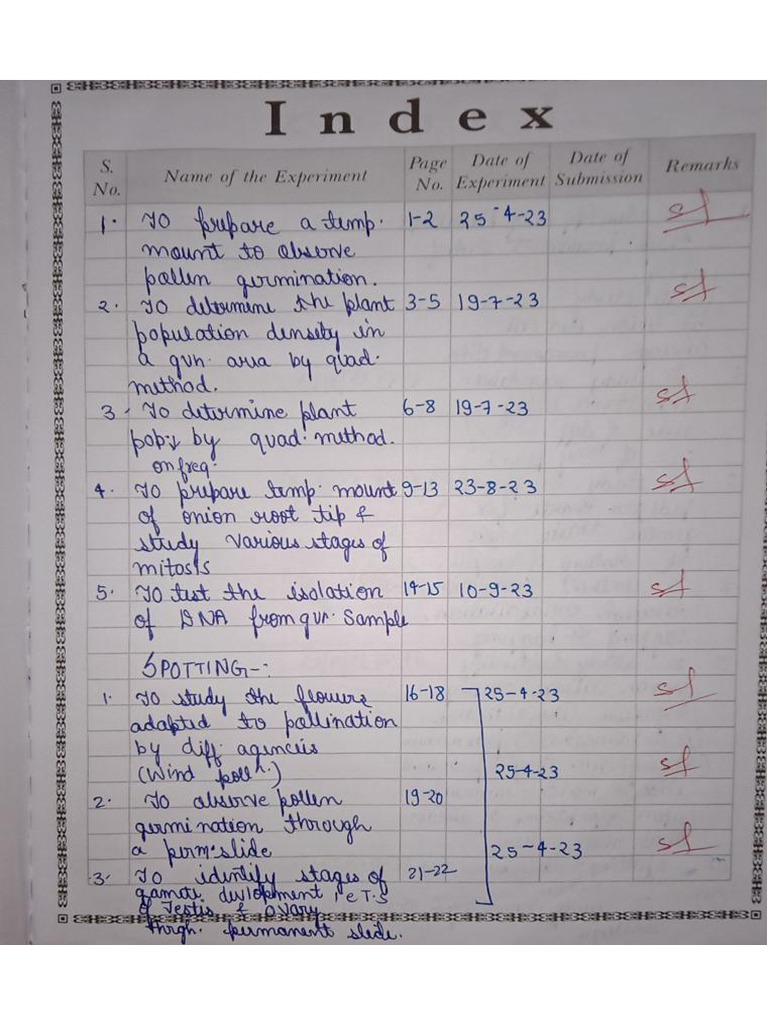 Index
S. No. Name of the Experiment Page No. Date of Experiment Date of Submission Remarks
1. To prepare a temp. 1-2 25-4-23
mount to observe
pollen germination.
2. To determine the plant 3-5 19-7-23
population density in
a gvn. area by quad.
method.
3. To determine plant 6-8 19-7-23
popn by quad. method.
on freq.
4. To prepare temp. mount 9-13 23-8-23
of onion root tip &
study various stages of
mitosis
5. To test the isolation 14-15 10-9-23
of DNA from gvn. Sample
SPOTTING-:
1. To study the flowers 16-18 25-4-23
adapted to pollination
by diff. agencies
(Wind polln.) 25-4-23
2. To observe pollen 19-20
germination through
a perm. slide 25-4-23
3. To identify stages of 21-22
gamete devlopment i.e T.S
of Testis & ovary
thrgh. permanent slide.